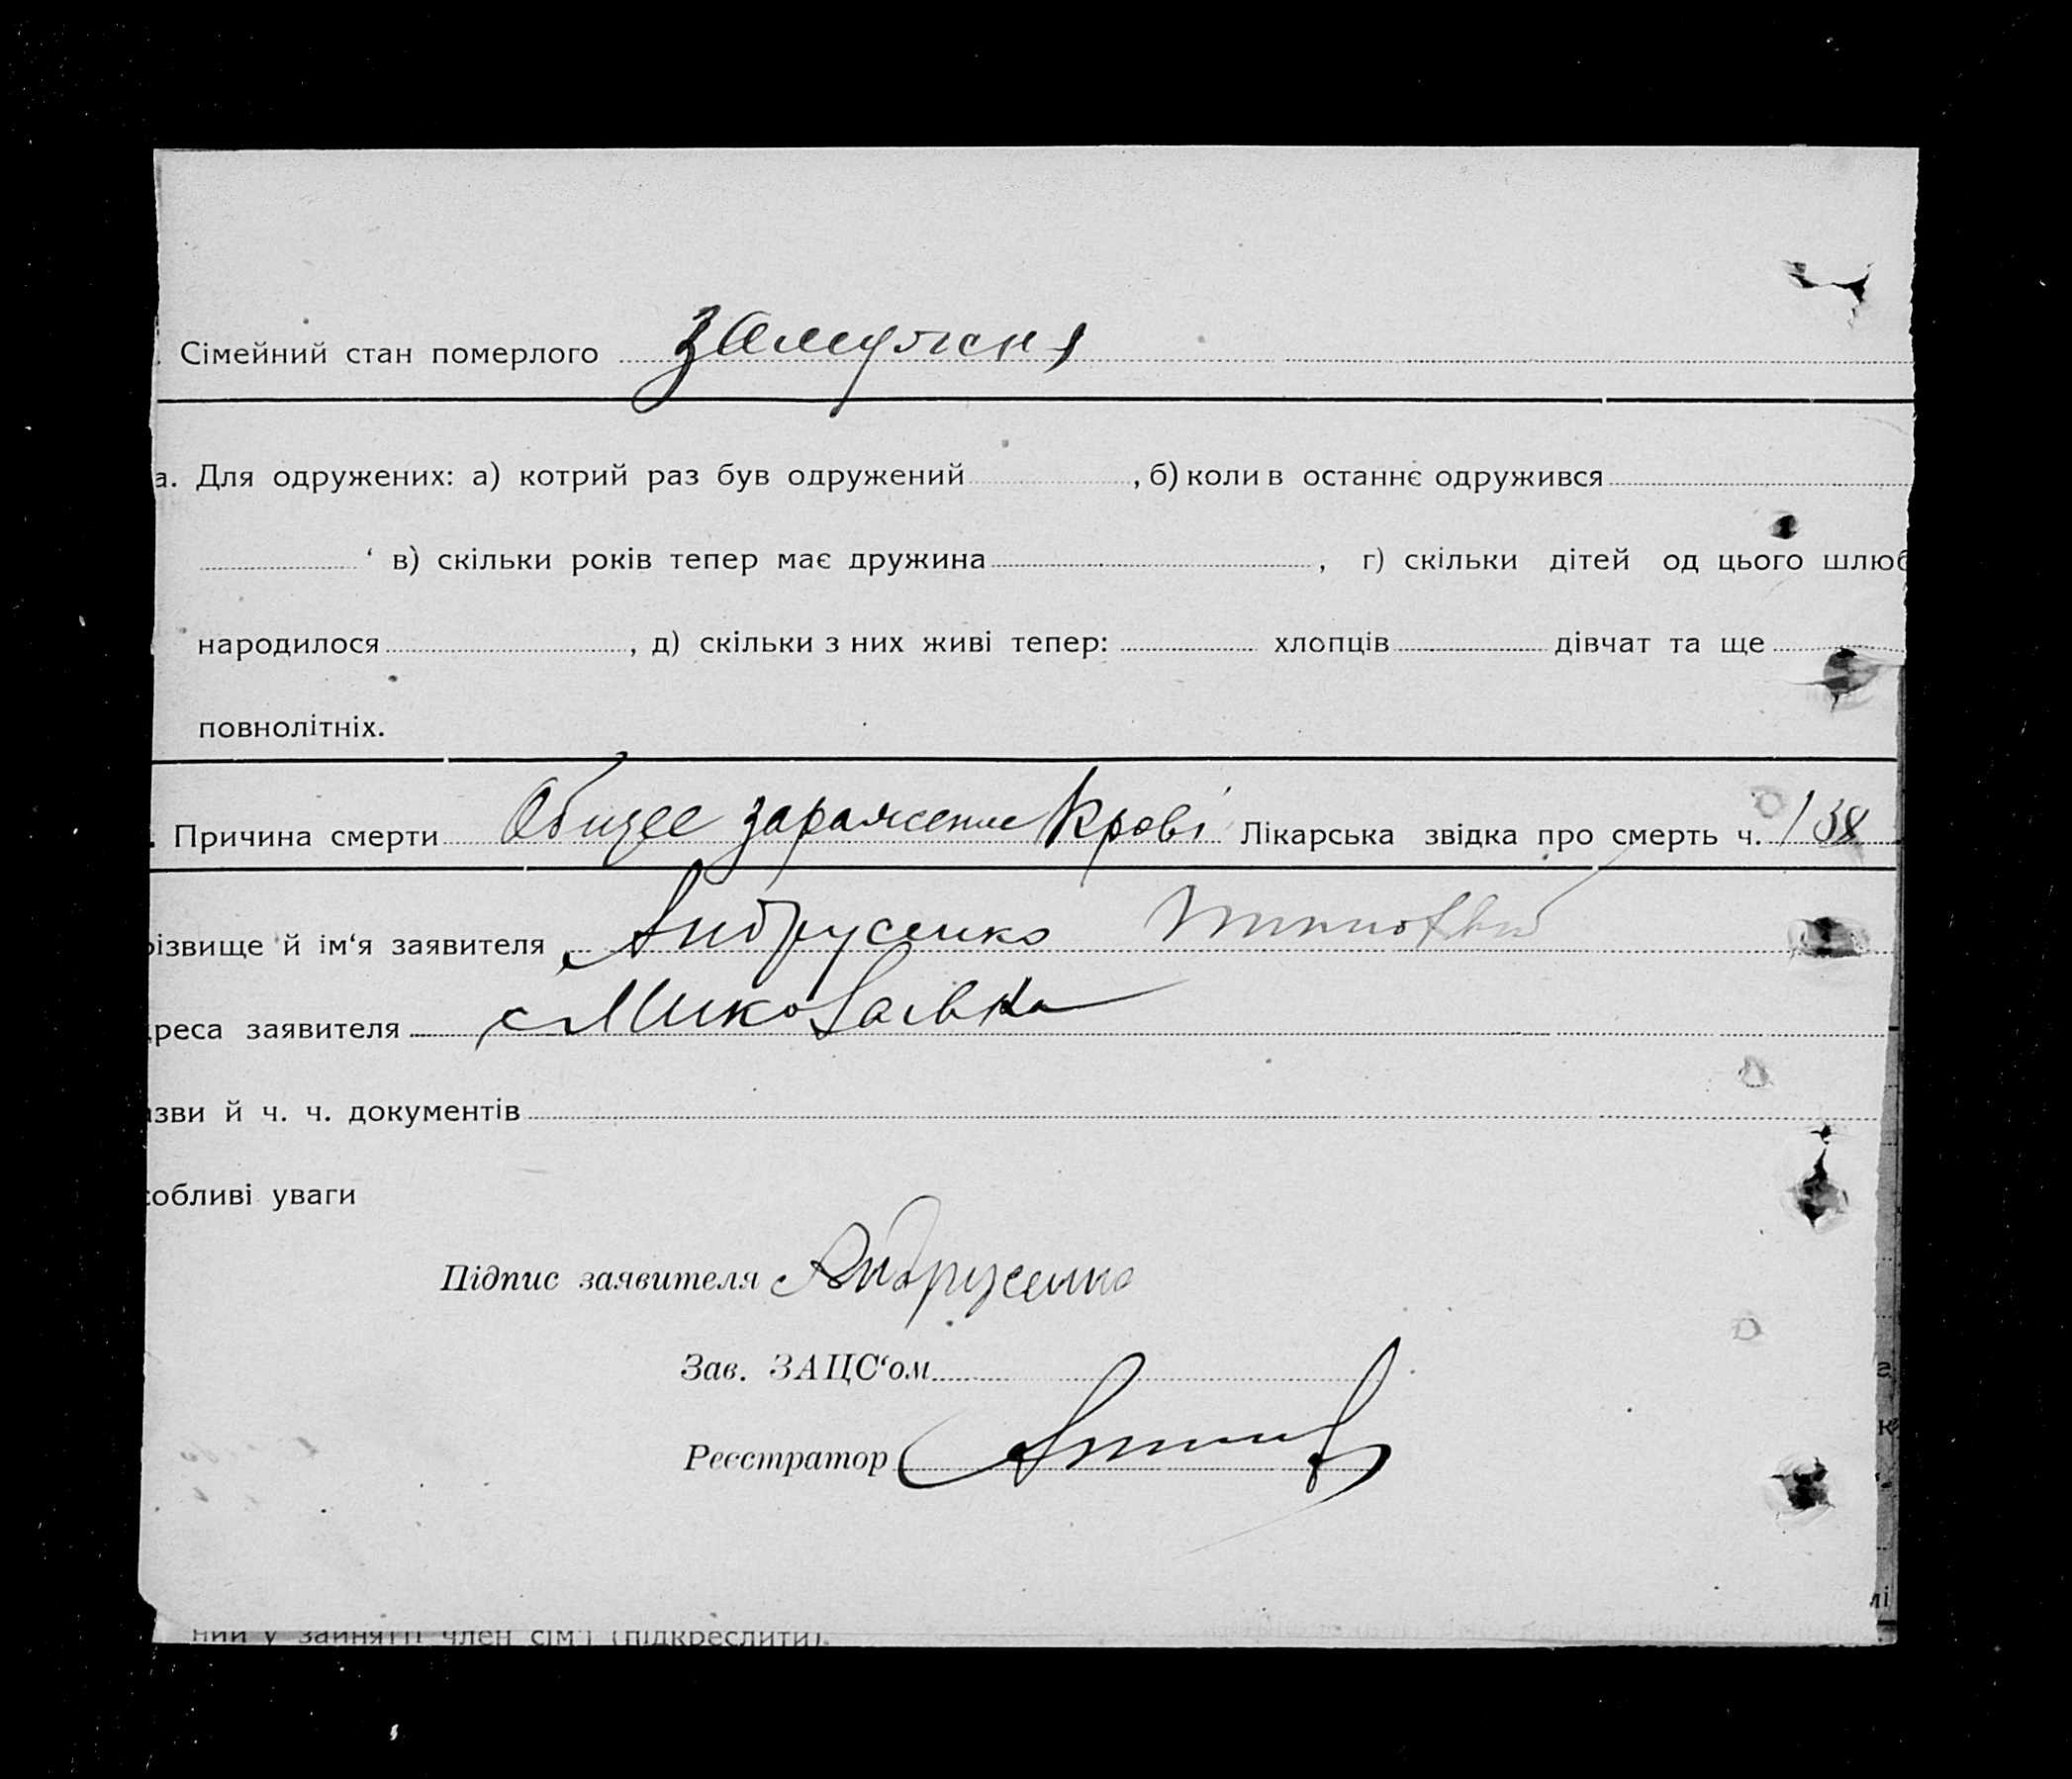 Сімейний стан померлого замужня
а. Для одружених: а) котрий раз був одружений , б) коли в останнє одружився
‘ в) скільки років тепер має дружина , г) скільки дітей од цього шлюб
народилося , д) скільки з них живі тепер: хлопців дівчат та ще
повнолітніх.
Причина смерти Общее заражение крові Лікарська звідка про смерть ч. 138
різвище й ім‘я заявителя Андрусенко
дреса заявителя с Миколаівка
азви й ч. ч. документів
собливі уваги
Підпис заявителя Андрусенко
Зав. ЗАЦС‘ом
Реєстратор
ний у зайнятті член сім'ї (підкреслити).